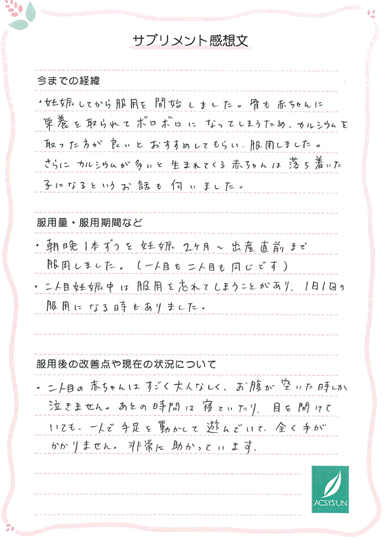 サプリメント感想文
今までの経緯
・妊娠してから服用を開始しました。骨も赤ちゃんに
栄養を取られてボロボロになってしまうため、カルシウムを
取った方が良いとおすすめしてもらい、服用しました。
さらにカルシウムが多いと生まれてくる赤ちゃんは落ち着いた
子になるというお話も伺いました。
服用量・服用期間など
・朝晩1本ずつを妊娠2ヶ月～出産直前まで
服用しました。(一人目も二人目も同じです)
・二人目妊娠中は服用を忘れてしまうことがあり、1日1回の
服用になる時もありました。
服用後の改善点や現在の状況について
・二人目の赤ちゃんはすごく大人なしく、お腹が空いた時しか
泣きません。あとの時間は寝ていたり、目を開けて
いても、一人で手足を動かして遊んでいて、全く手が
かかりません。非常に助かっています。
ACSYSUN